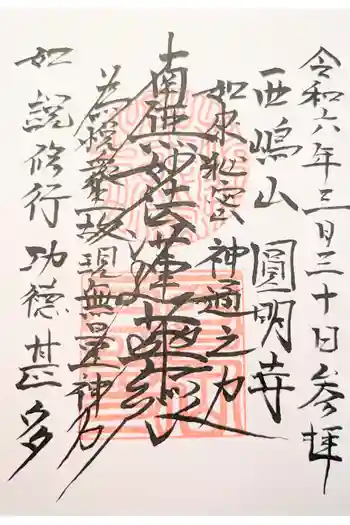 令和六年三月三十日参拝
西嶋山 圓明寺
如来秘密 神通之力
南無妙法蓮華経
為悦衆生故 現無量神力
如説修行 功徳甚多